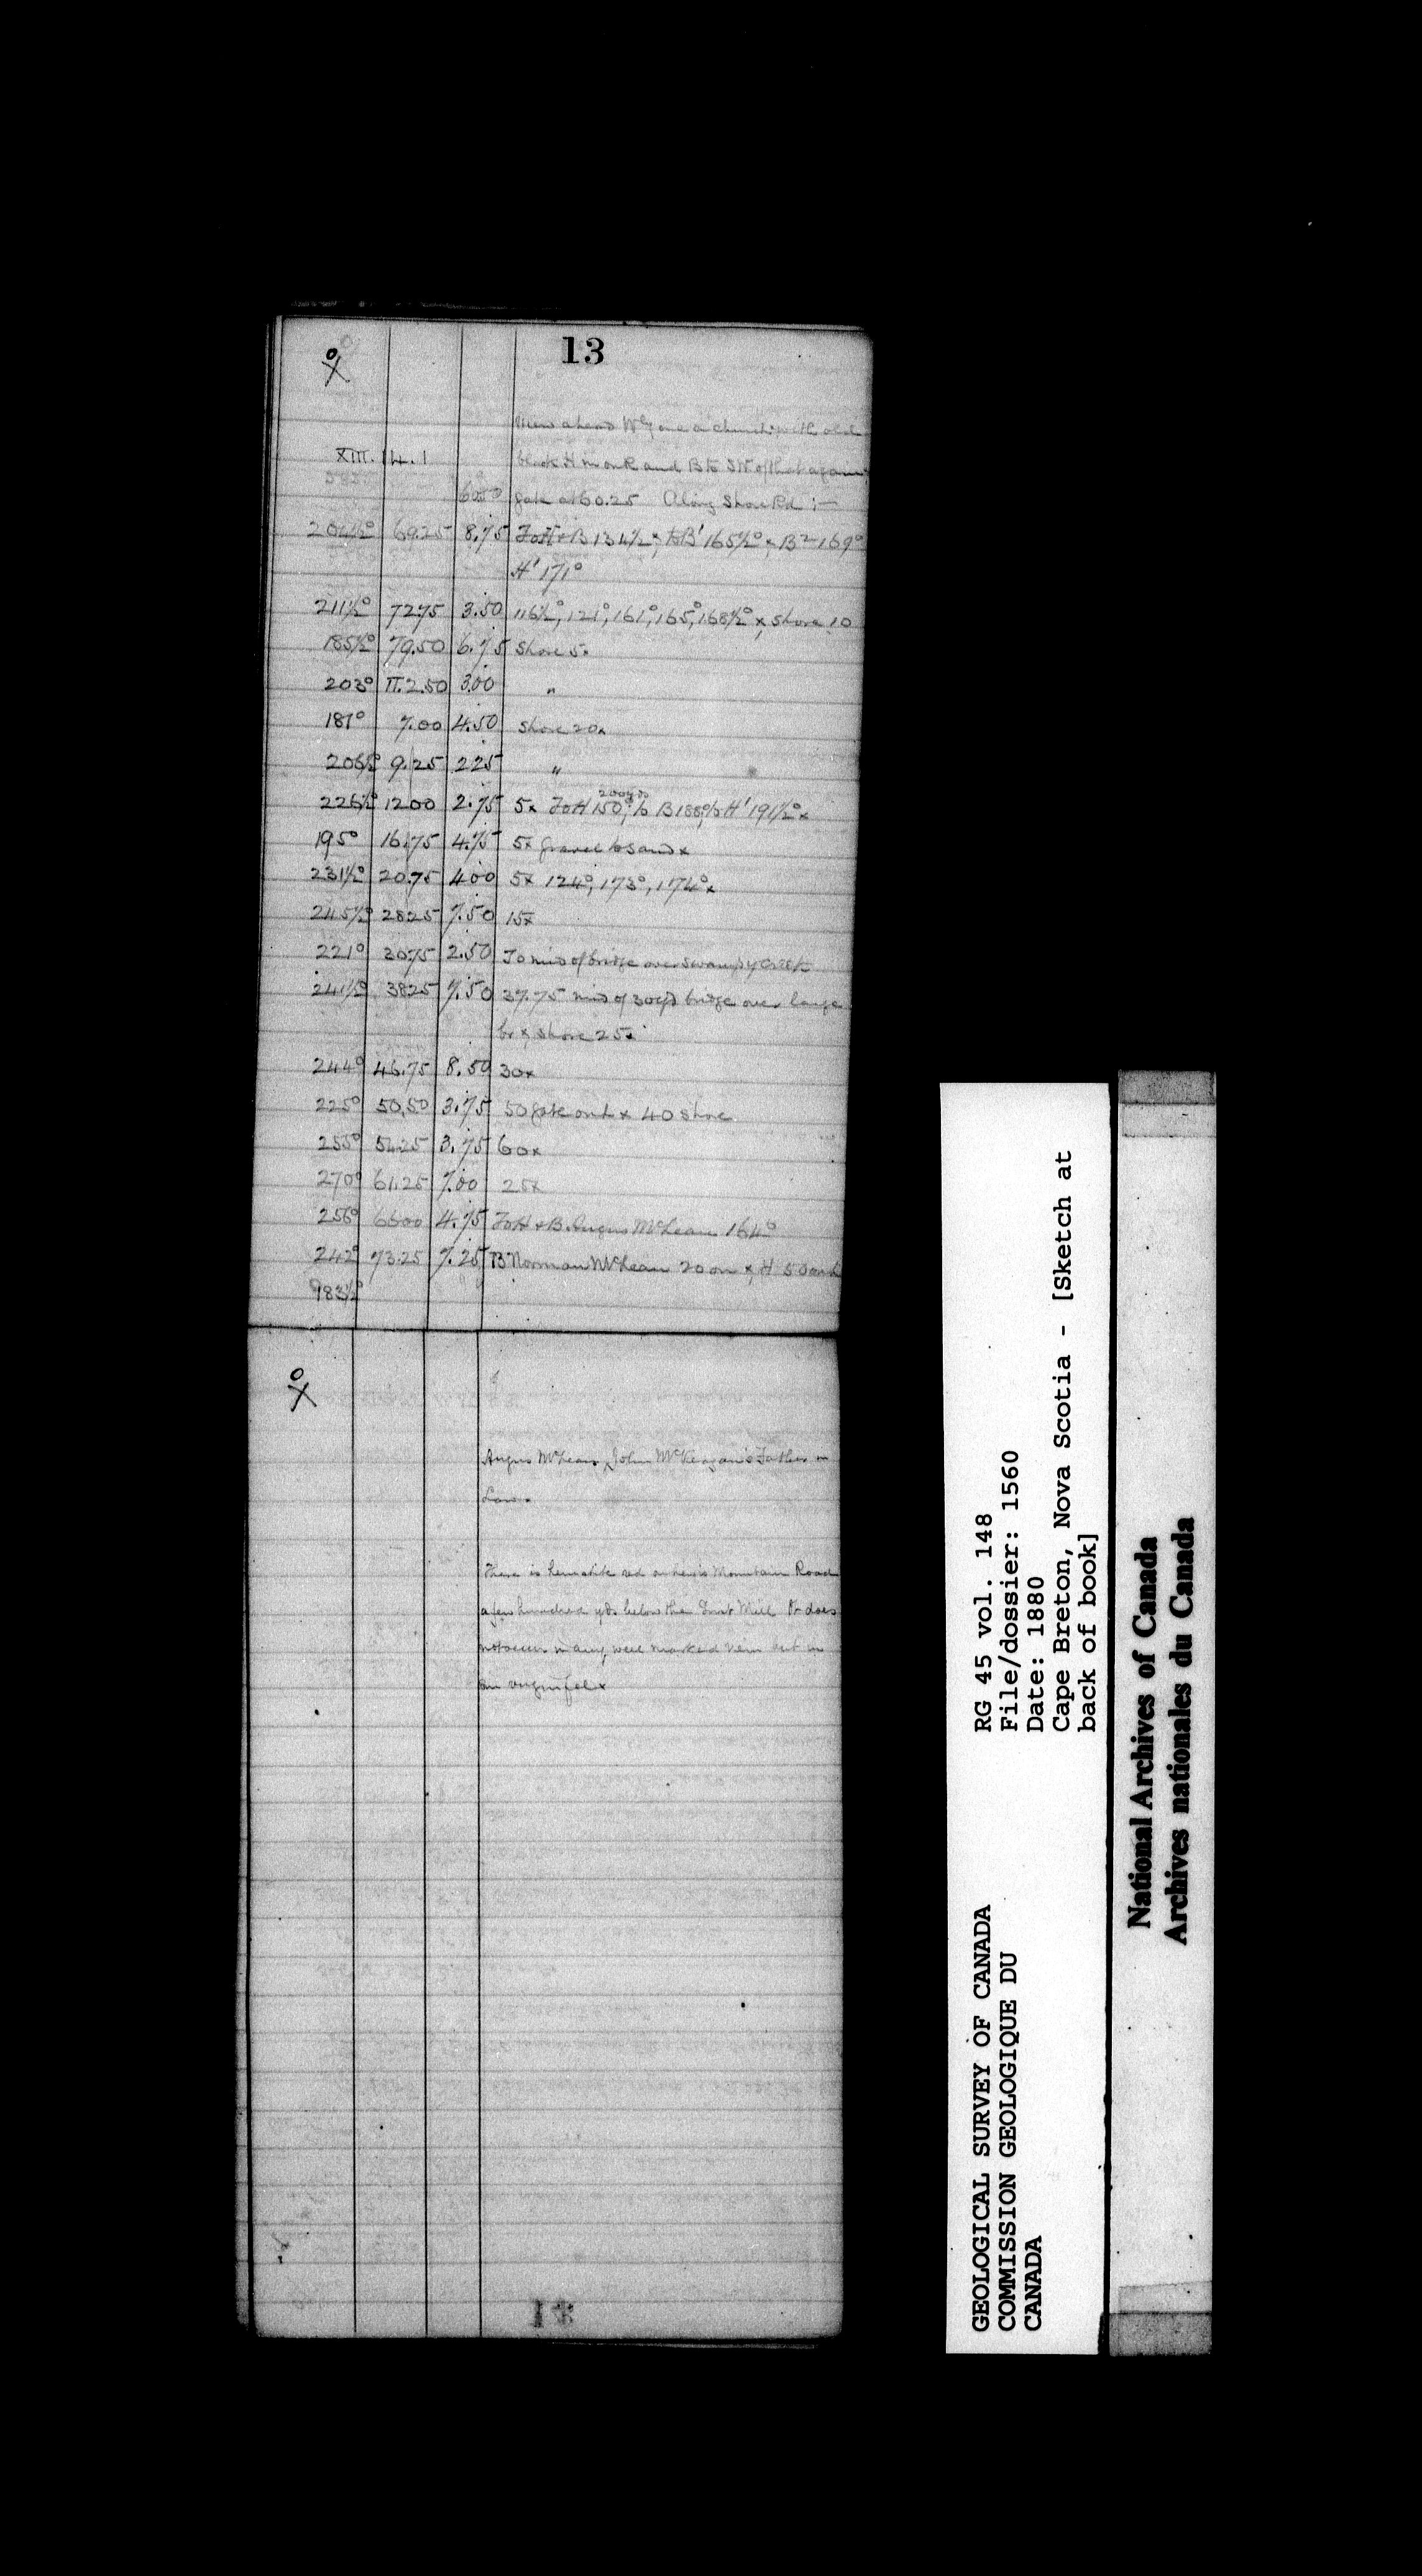 13
XIII. 14. 1
60.50 gate at 60.25 Along Shore Rd :—
204½° 69.25 8.75 To H & B 134½°, to B' 165½°, B² 169°
H' 171°
211½° 72.75 3.50 116½°, 121°, 161°, 165°, 168½° x, shore 10
185½° 79.50 6.75 Shore 5x
203° II.2.50 3.00 "
187° 7.00 4.50 Shore 20x
206½° 9.25 2.25 "
200 yds
226½° 12.00 2.75 5x To H 150°, to B 188°, to H' 191½° x
195° 16.75 4.75 5x gravel to sand x
231½° 20.75 4.00 5x 124°, 173°, 174° x
245½° 28.25 7.50 15x
221° 30.75 2.50 To mid of bridge over swampy creek
241½° 38.25 7.50 37.75 mid of 30 yd bridge over large
br x, shore 25x
244° 46.75 8.50 30x
225° 50.50 3.75 50 gate on L x 40 shore
255° 54.25 3.75 60x
270° 61.25 7.00 25x
256° 66.00 4.75 To H & B. Angus McLean 164°
242° 73.25 7.25 B Norman McLean 20 on x, H 50 on L
183½°
Angus McLean John McKeagan's Father in
Law x
There is hematite red on Mountain Road
a few hundred yds below the Mill It does
not occur in any well marked vein but in
an
14
RG 45 vol. 148
File/dossier: 1560
Date: 1880
Cape Breton, Nova Scotia - [Sketch at
back of book]
GEOLOGICAL SURVEY OF CANADA
COMMISSION GEOLOGIQUE DU
CANADA
National Archives of Canada
Archives nationales du Canada